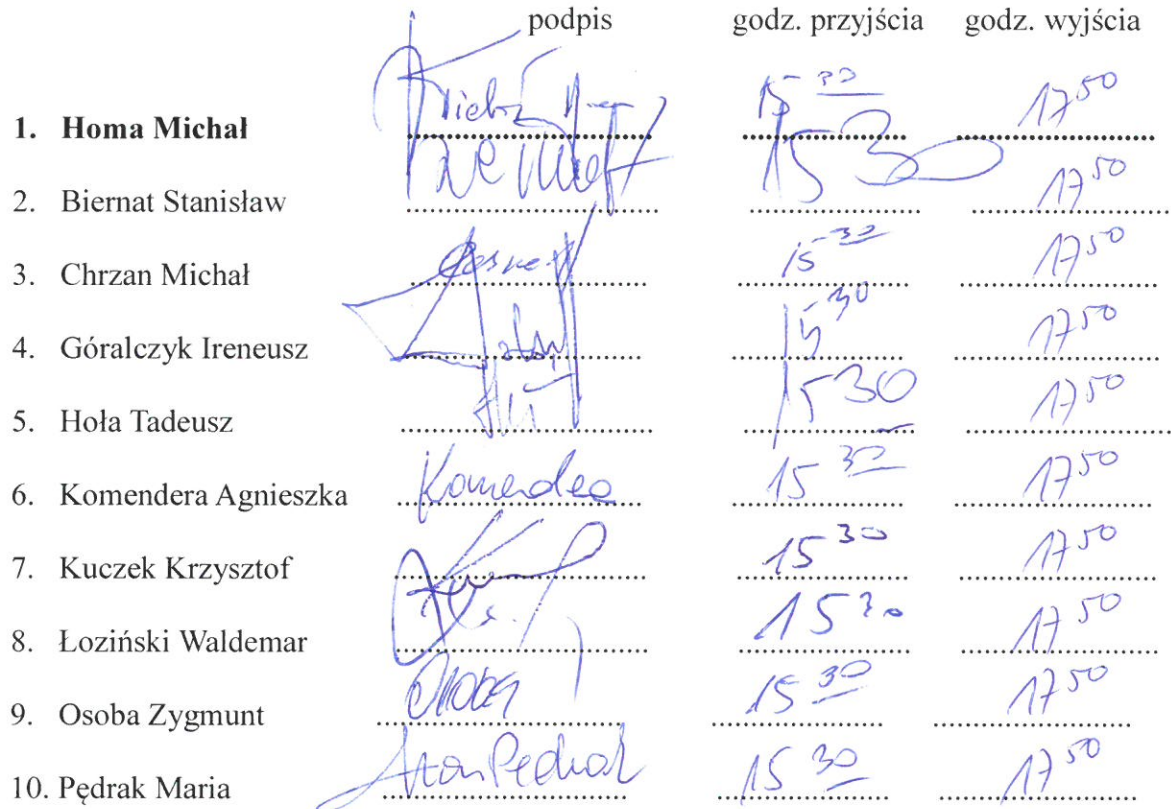 podpis godz. przyjścia godz. wyjścia
1. Homa Michał 15 30 17 50
2. Biernat Stanisław 15 30 17 50
3. Chrzan Michał 15 30 17 50
4. Góralczyk Ireneusz 15 30 17 50
5. Hoła Tadeusz 15 30 17 50
6. Komendera Agnieszka Komendera 15 30 17 50
7. Kuczek Krzysztof 15 30 17 50
8. Łoziński Waldemar 15 30 17 50
9. Osoba Zygmunt Osoba 15 30 17 50
10. Pędrak Maria Pędrak 15 30 17 50